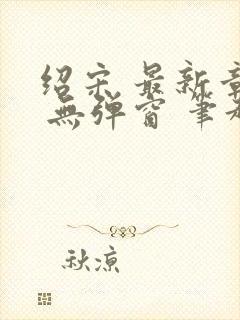 绍宋 最新章
無弹窗 筆
秋凉